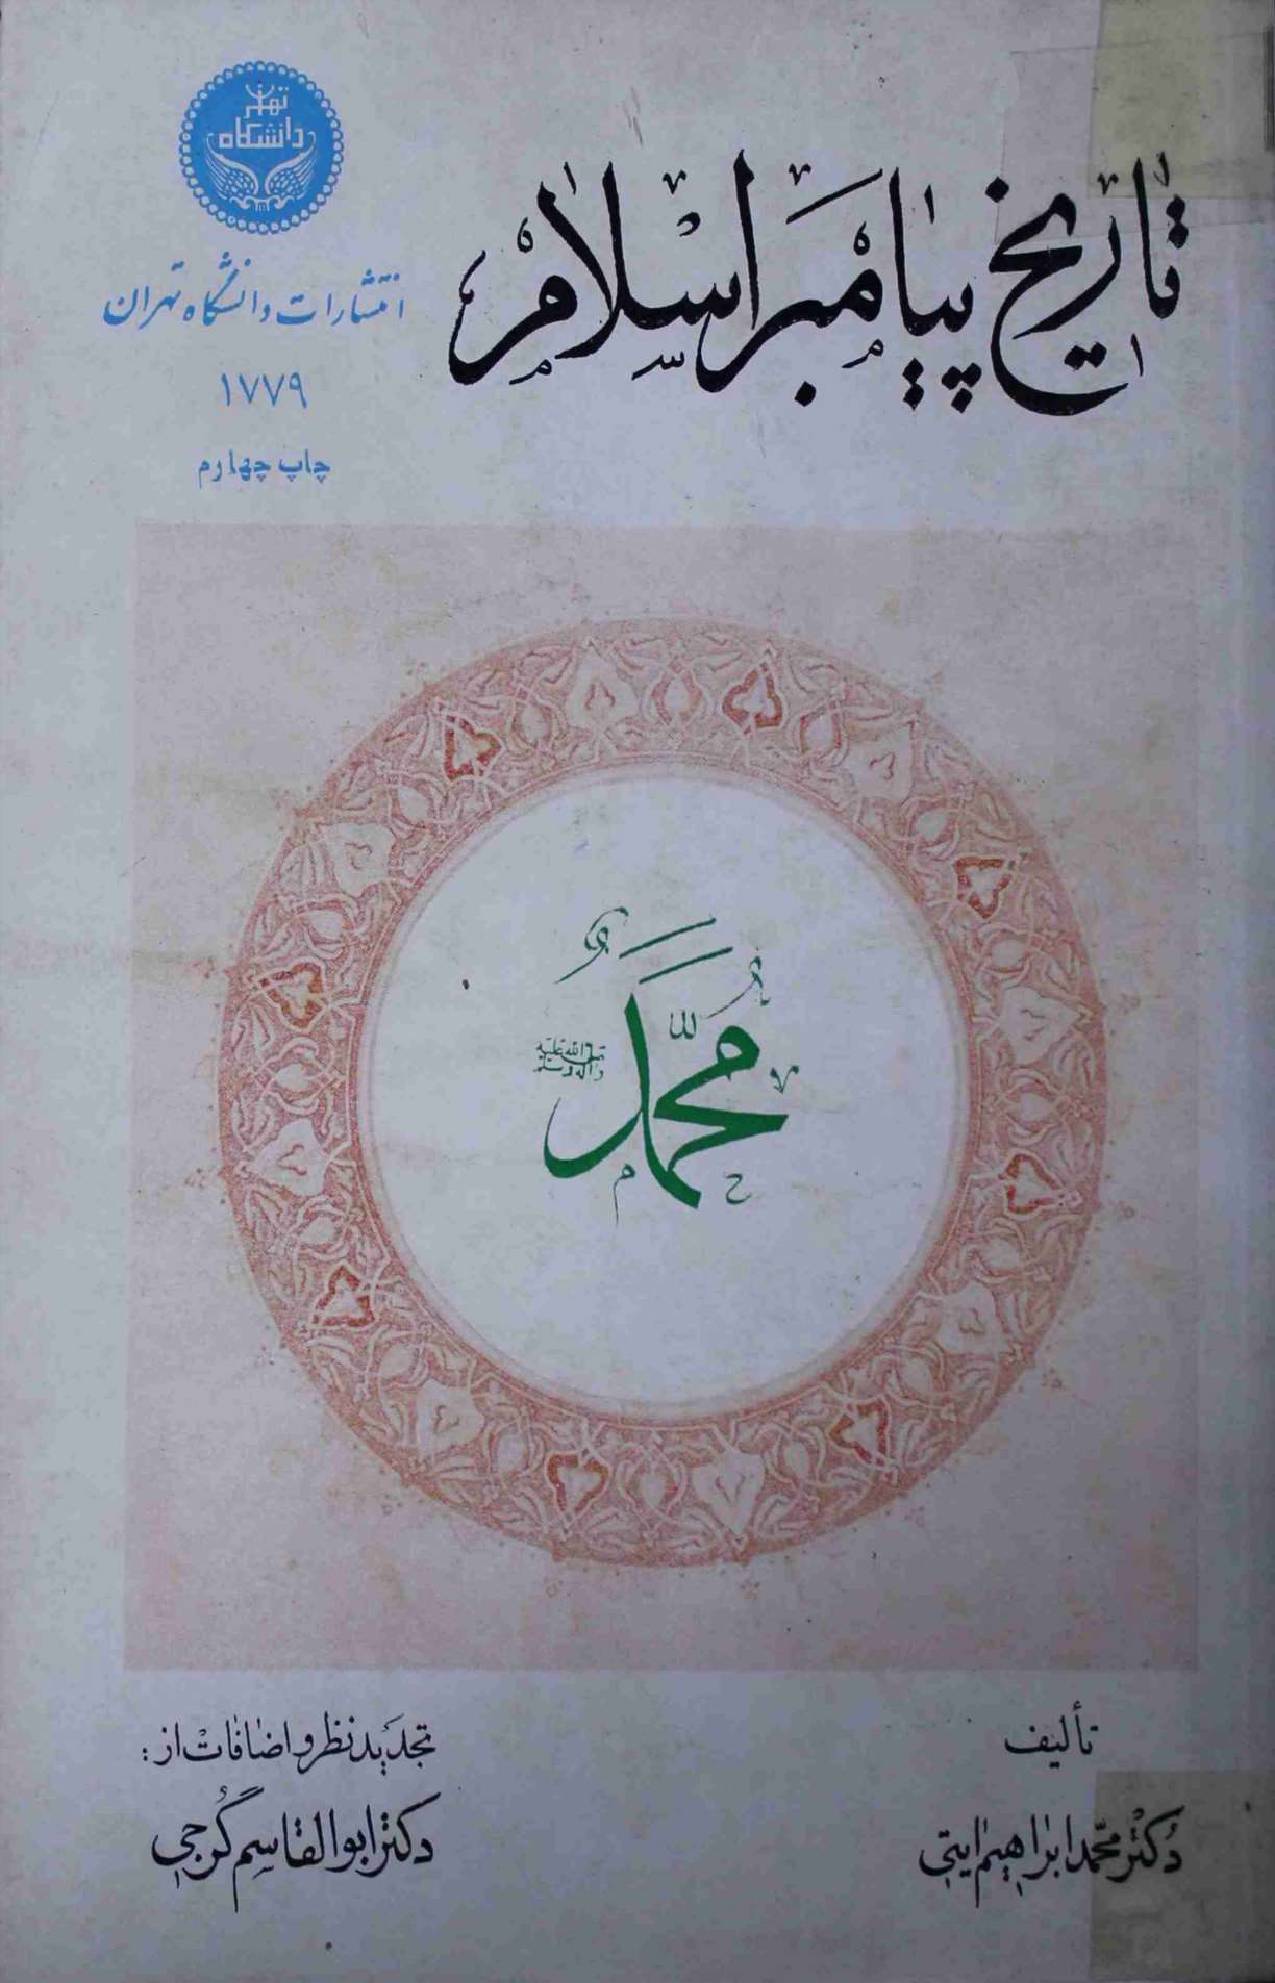 تاریخ پیامبر اسلام
دانشگاه تهران
انتشارات دانشگاه تهران
۱۷۷۹
چاپ چهارم
محمد
صلی الله علیه
و آله و سلم
تألیف
دکتر محمد ابراهیم آیتی
تجدید نظر و اضافات از:
دکتر ابوالقاسم گرجی